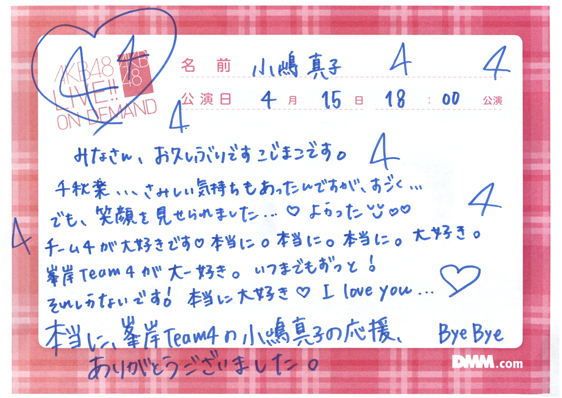 AKB48
LIVE!!
ON DEMAND
AKB
48
4 4
名前 小嶋真子 4 4
公演日 4月 15日 18:00 公演
4
みなさん、お久しぶりですこじまこです。 4
千秋楽...さみしい気持ちもあったんですが、すごく...
でも、笑顔を見せられました...♡ よかった♡♡ 4
4 チーム4が大好きです♡本当に。本当に。本当に。大好き。
峯岸Team4が大一好き。いつまでもずっと!
それしかないです! 本当に大好き♡ I love you...♡
本当に、峯岸Team4の小嶋真子の応援、 Bye Bye
ありがとうございました。
DMM.com